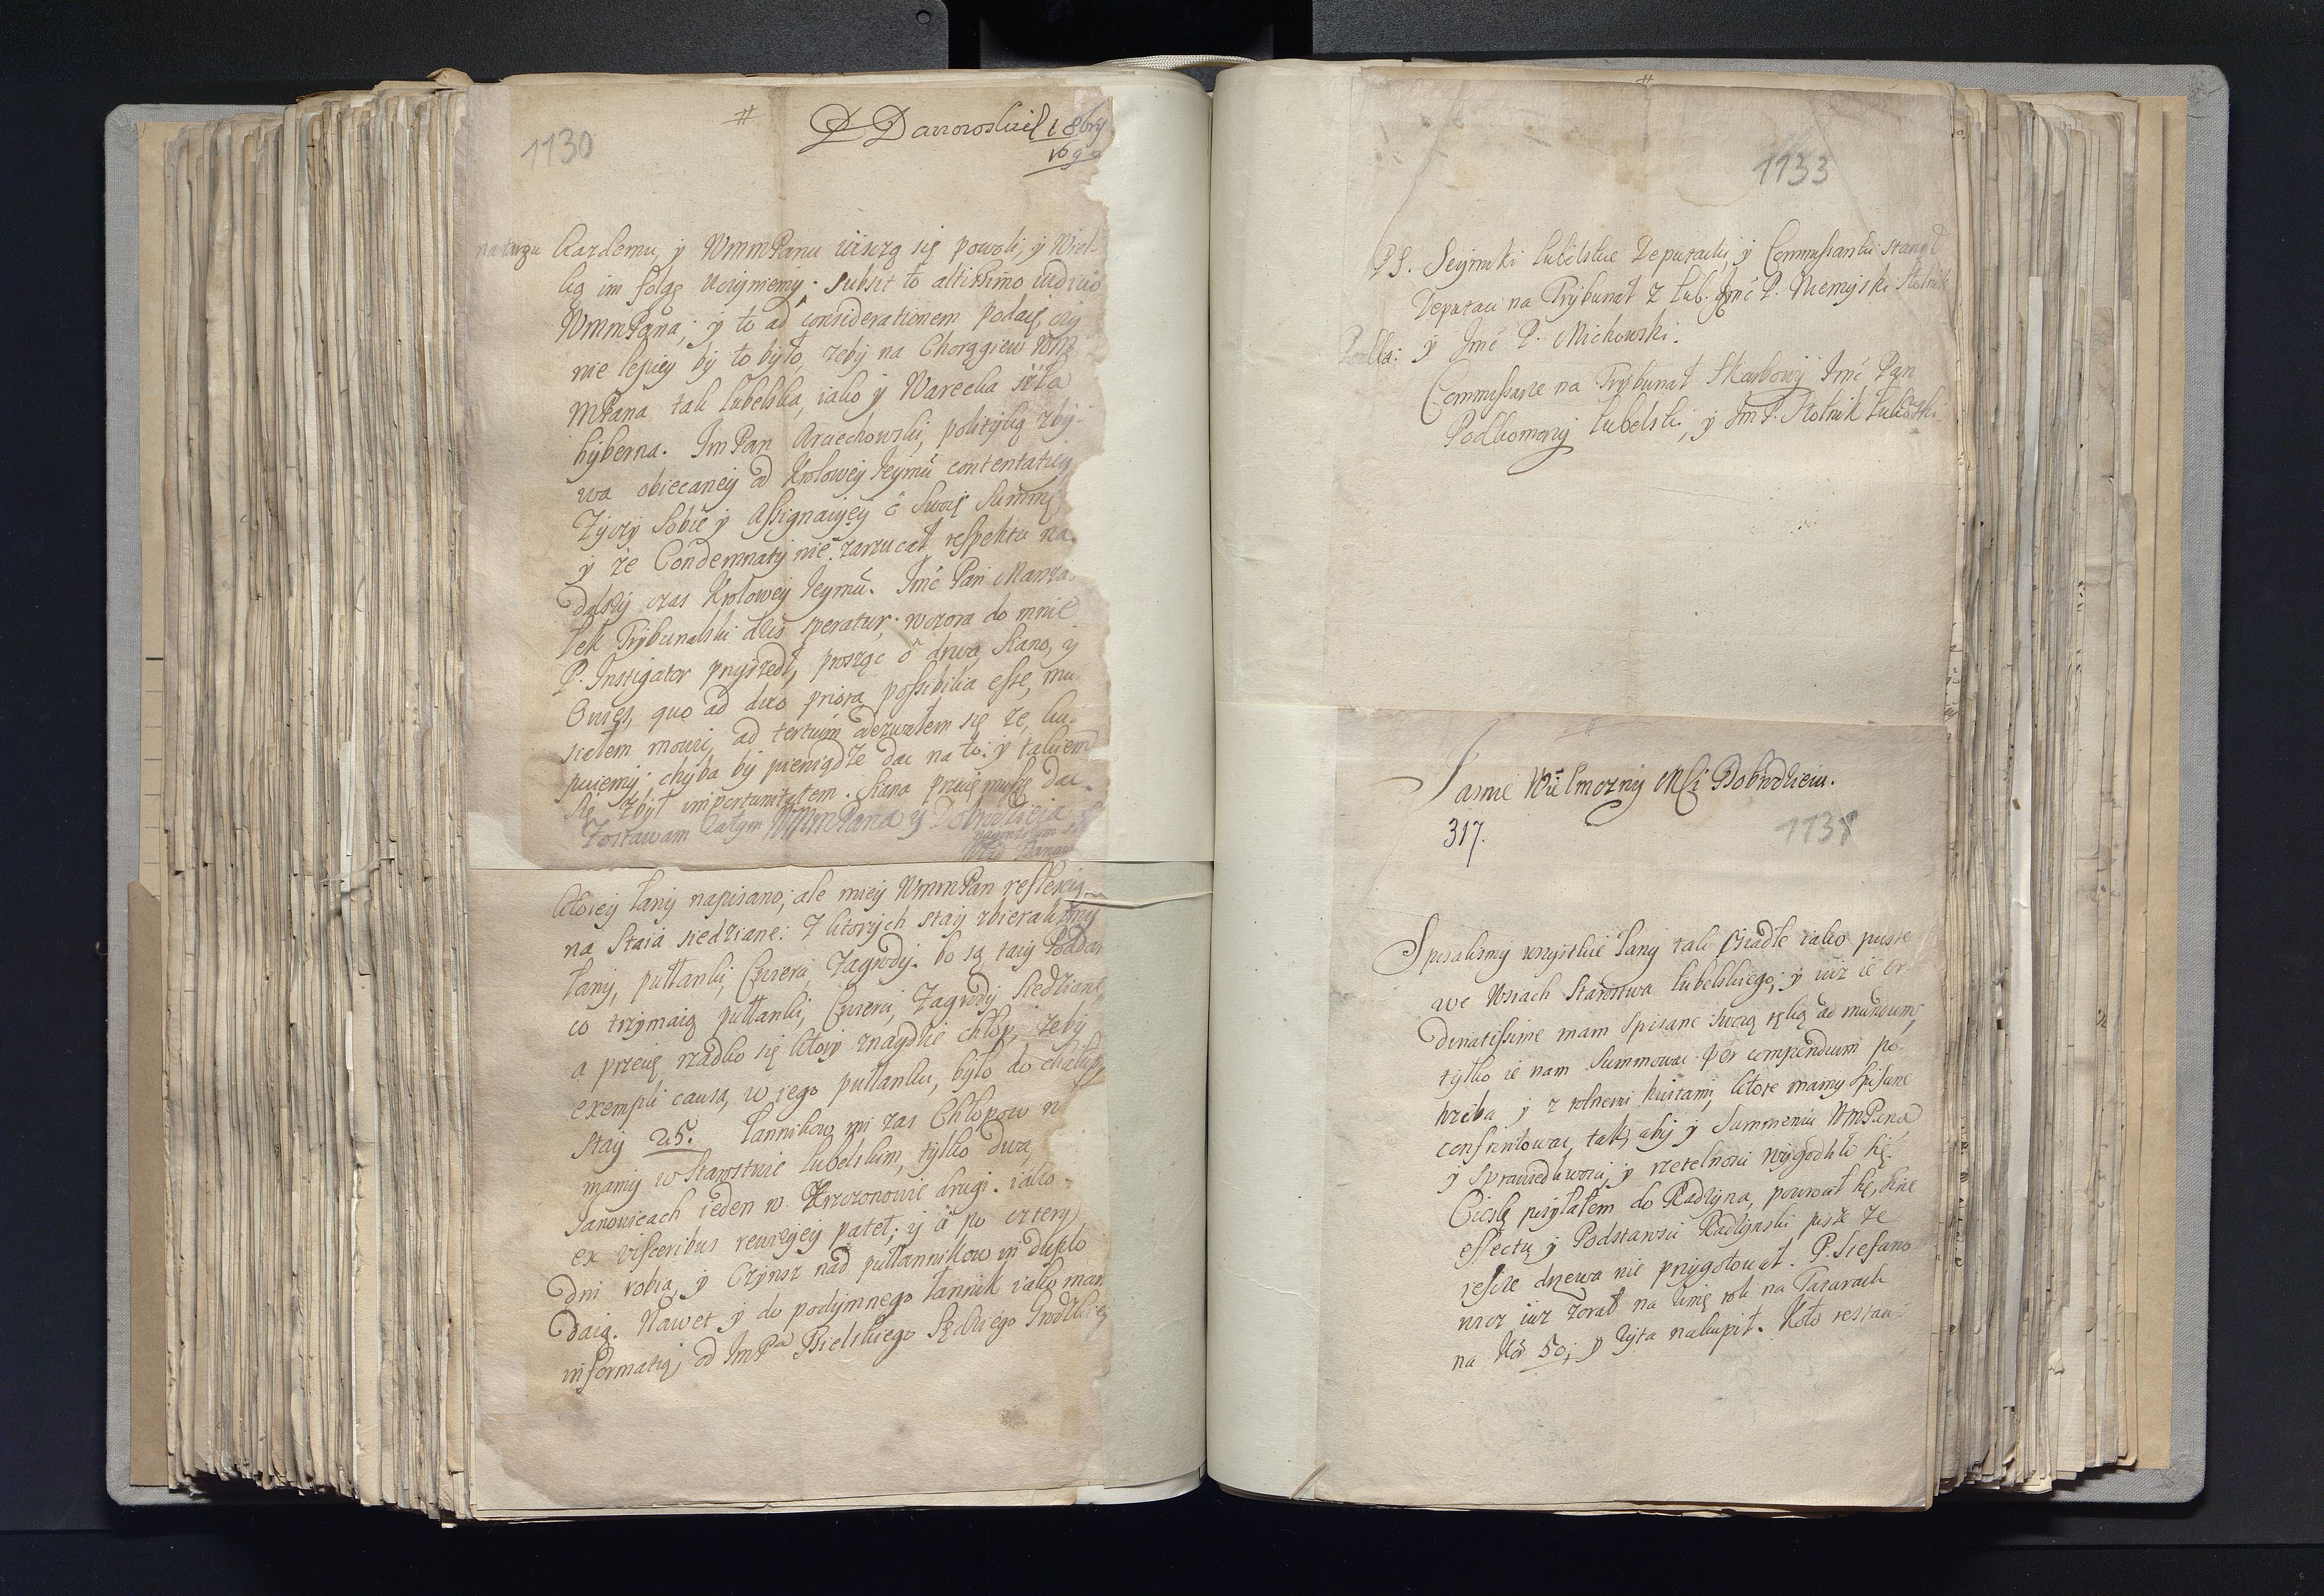 1130
#
P Danowskiej 1 8bry
1690
każdemu y WmmPanu uiszczą się powoli, y Wiel-
ką im folgę uczyniemy. Subsit to altissimo iudicio
WmmPana; y to ad considerationem podaię, czy
nie lepiey by to było, żeby na Chorągiew Wm
mPana tak Lubelska, iako y Warecka szła
hyberna. ImPan Arciechowski, polityką zby-
wa obiecaney od Krolowey Jeymci contentatiey
Zyczy sobie y Assignacyey o swoię Summę,
y że Condemnaty nie zarzucał respektu na
dalszy czas Krolowey Jeymci. Imć Pan Marsza-
łek Trybunalski dłus speratur; wczora do mnie
P. Instigator przyszedł, prosząc o drwa, Siano, y
Owies, quo ad duo priora possibilia esse, mu-
siałem mowić, ad tertium ozwałem się że, ku-
puiemy; chyba by pieniądze dać na to: y takiem
się zbył importunitatem. Siana przecię muszę dać.
Zostawam całym WmmPana y Dobrodzieia
ktorey łany napisano; ale miey WmmPan reflexią
na staia siedziane: Z ktorych stay zbieralismy
łany, pułłanki, Cwierci, Zagrody. bo są tacy Poddan
co trzymaią pułłanki, Cwierci, Zagrody siedziane,
a przecię rzadko się ktory znaydzie chłop, żeby
exempli causa, w iego pułłanku, było do chałupy
stay 25. Łannikow mi zas Chłopow n
mamy w Starostwie Lubelskim, tylko dwa
Janowicach ieden w Krzczonowie drugi. iako
ex visceribus rewizyey patet; y ci po cztery
dni robią, y Czynsz nad pułłannikow in duplo
daią. Nawet y do podymnego łannik iako mam
informatią, od ImPa Bielskiego Sędziego Grodzkieg
#
1133
PS. Seymiki Lubelskie Deputackie y Commissarskie stanęł
Deputaci na Trybunał z Lub: Jmć P. Niemyski Stolnik
Podla: y Jmć P. Michowski.
Commissarze na Trybunał Skarbowy Jmć Pan
Podkomorzy Lubelski, y Jm P. Stolnik Lubelski
#
Jasnie Wielmozny Mci Dobrodzieiu.
317.
1138
Spisalismy wszystkie łany tak osiadłe iako puste
we Wsiach Starostwa Lubelskiego; y iuż ie or-
dinatissime mam spisane swoią ręką ad mundum,
tylko ie nam summować per compendium po-
trzeba y z rolnemi kwitami, ktore mamy spisane
confrontować, tak, aby y Summeniu WmPana,
y sprawiedliwości, y rzetelności wygodziło się.
Cieslę posyłałem do Radzyna, powrocił się, sine
effectu y Podstarosci Radzynski pisze że
ieszcze drzewa nie przygotował. P. Stefano-
wicz iuż zorał na zimę roli na Tatarach
na Kor 50; y żyta nakupił. Koło restau-